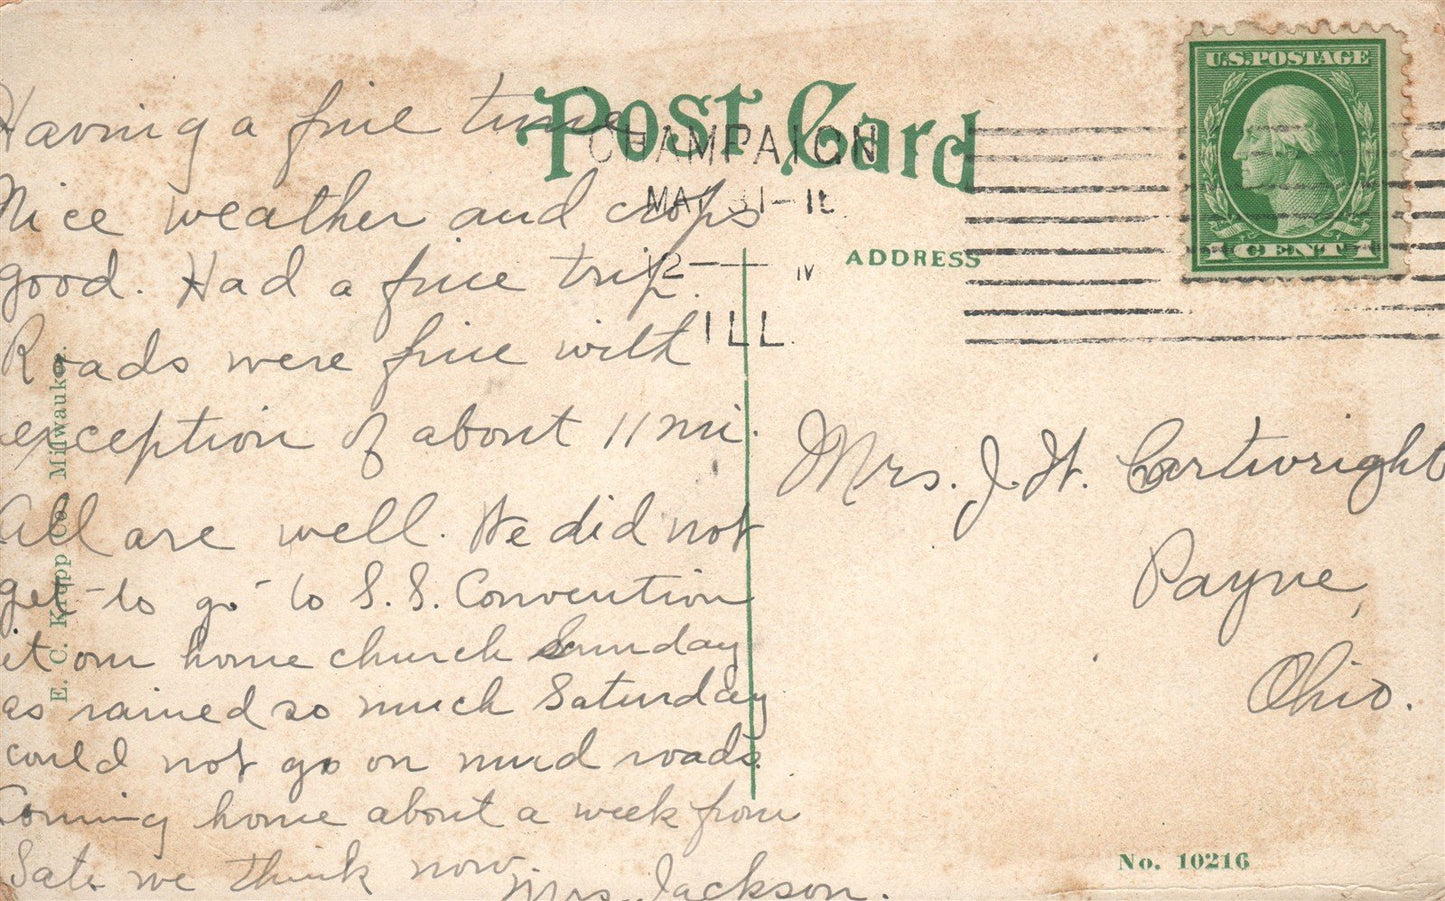 Post Card
CHAMPAIGN
MAY 31
12
ILL.
U.S. POSTAGE
1 CENT 1
ADDRESS
Having a fine time
Nice weather and crops
good. Had a fine trip.
Roads were fine with
exception of about 11 mi.
All are well. We did not
get to go to S. S. Convention
at our home church Sunday
as rained so much Saturday
could not go on mud roads.
Coming home about a week from
Sat. we think now.
Mrs. Jackson.
Mrs. J. W. Cartwright
Payne,
Ohio.
E. C. Kropp Co. Milwaukee.
No. 10216